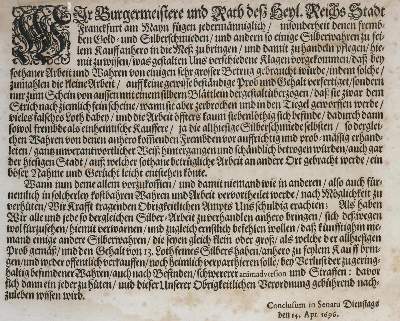 WIr Burgermeistere und Rath deß Heyl. Reichs Stadt
Franckfurt am Mayn fügen jedermänniglich / insonderheit denen frembden
Gold- und Silberschmieden / und andern so einige Silberwahren zu feilem
Kauff anhero in die Meß zu bringen / und damit zu handeln pflegen / hiemit
zu wissen / was gestalten Uns verschiedene Klagen vorgekommen / daß bey
sothaner Arbeit und Wahren von einigen sehr grosser Betrug gebraucht würde / indem solche /
zumahlen die kleine Arbeit / auff keine gewisse beständige Prob und Gehalt verfertiget / sondern
nur zum Schein von aussen mit einem silbern überzogen / daß sie zwar dem
Strich nach ziemlich fein scheine / wann sie aber zerbrochen und in den Tiegel geworffen werde /
vieles falsches Loth habey / und die Arbeit öffters kaum siebenlöthig sich befinde / dadurch dann
sowol frembde als einheimische Kauffere / ja die allhiesige Silberschmiede selbsten / so dergleichen
Wahren von denen anhero kommenden Frembden vor auffrichtig und probmässig erhandleten /
gantz unverantwortlicher Weiß hintergangen und schändlich betrogen würden / auch gar
der hiesigen Stadt / auß welcher sothane betrügliche Arbeit an andere Ort gebracht werde / ein
böser Nahme und Gerücht leicht entstehen könte.
Wann nun deme allem vorzukommen / und damit niemand wie in andern / also auch fürnemlich
in solcherley kostbahren Wahren und Arbeit vervortheilet werde / nach Möglichkeit zu
verhüten / Wir Krafft tragenden Obrigkeitlichen Ampts Uns schuldig erachten: Als haben
Wir alle und jede so dergleichen Silber-Arbeit zu verhandlen anhero bringen / sich deßwegen
wol fürzusehen / hiemit verwarnen / und zugleich ernstlich befehlen wollen / daß künfftighin niemand
einige andere Silberwahren / die seyen gleich klein oder groß / als welche der allhiesigen
Prob gemäß / und den Gehalt von 13. Loth feines Silbers haben / anhero zu feylem Kauff bringen /
und weder offentlich verkauffen / noch heimlich verparthieren solle / bey Verlust der zu geringhaltig
befundener Wahren / auch nach Befinden / schwererer animadversion und Straffen: davor
sich dann ein jeder zu hüten / und dieser Unserer Obrigkeitlichen Verordnung gebührend nachzuleben
wissen wird.
Conclusum in Senatu Dienstags
den 14. Apr. 1696.